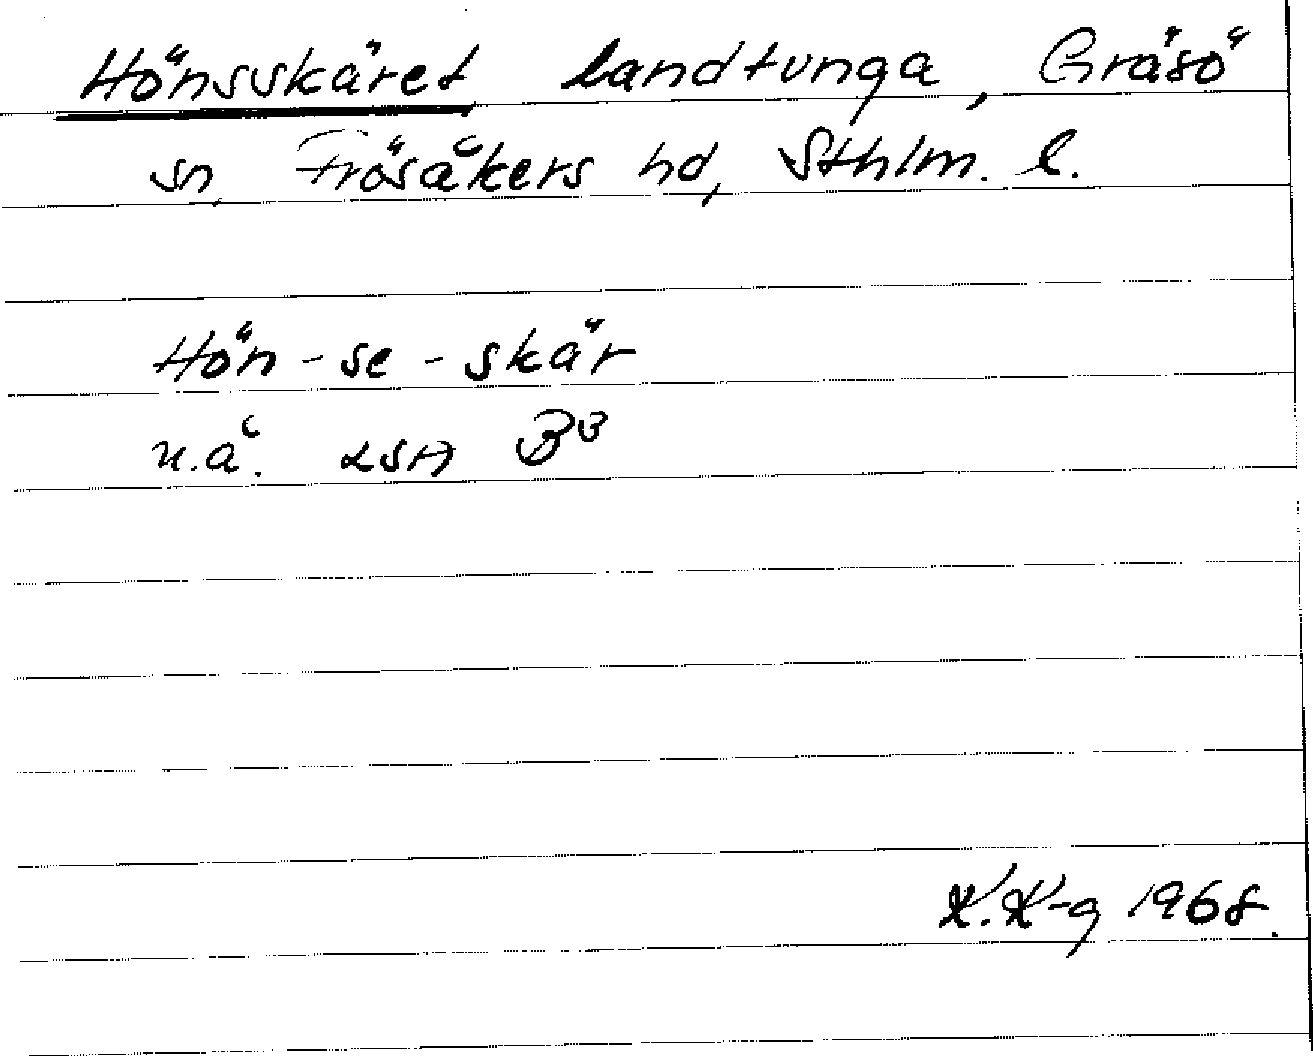 Hönsskäret landtunga, Gräsö
sn, Frösåkers hd, Sthlm. l.
Hön-se-skär
u.å. LSA B3
K.K-g 1968.